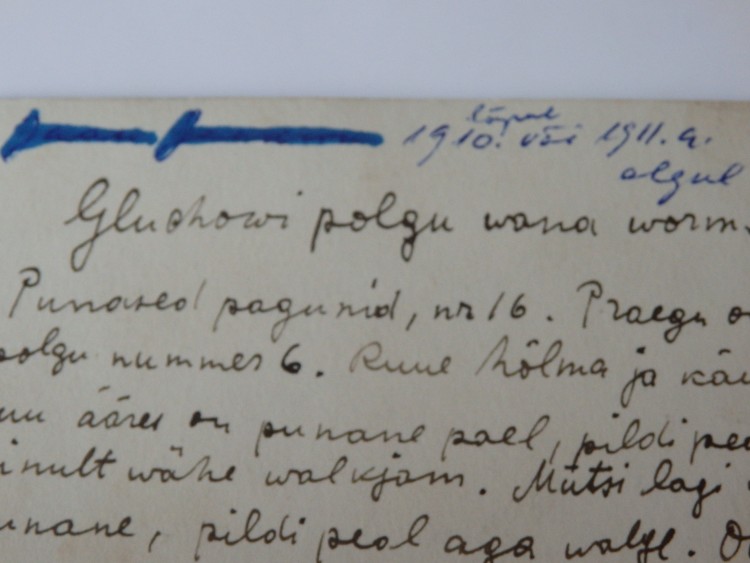 lõpul
1910. või 1911. a.
algul
Gluchowi polgu wana worm.
Punased pagunid, nr 16. Praegu on
polgu nummer 6. Kuue hõlma ja käi
uu ääres on punane pael, pildi peal
inult wähe walkjam. Mütsi lagi
unane, pildi peal aga walge. On